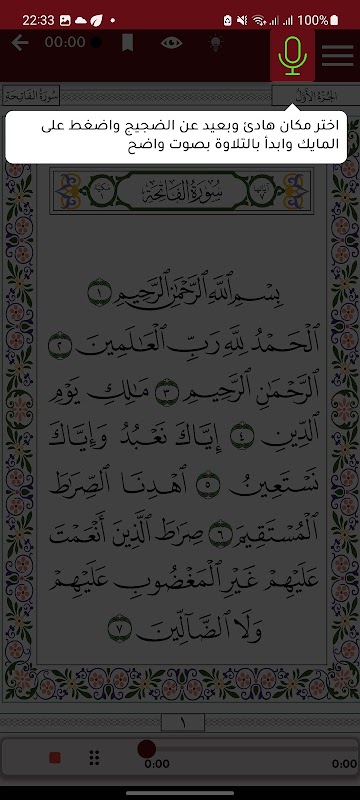 22:33 100%
00:00
سُورَةُ الفَاتِحَةِ الجُزْءُ الأَوَّلُ
اختر مكان هادئ وبعيد عن الضجيج واضغط على
المايك وابدأ بالتلاوة بصوت واضح
سُورَةُ الْفَاتِحَةِ
بِسْمِ ٱللَّهِ ٱلرَّحْمَٰنِ ٱلرَّحِيمِ ١
ٱلْحَمْدُ لِلَّهِ رَبِّ ٱلْعَٰلَمِينَ ٢
ٱلرَّحْمَٰنِ ٱلرَّحِيمِ ٣ مَٰلِكِ يَوْمِ
ٱلدِّينِ ٤ إِيَّاكَ نَعْبُدُ وَإِيَّاكَ
نَسْتَعِينُ ٥ ٱهْدِنَا ٱلصِّرَٰطَ
ٱلْمُسْتَقِيمَ ٦ صِرَٰطَ ٱلَّذِينَ أَنْعَمْتَ
عَلَيْهِمْ غَيْرِ ٱلْمَغْضُوبِ عَلَيْهِمْ
وَلَا ٱلضَّآلِّينَ ٧
١
0:00 0:00